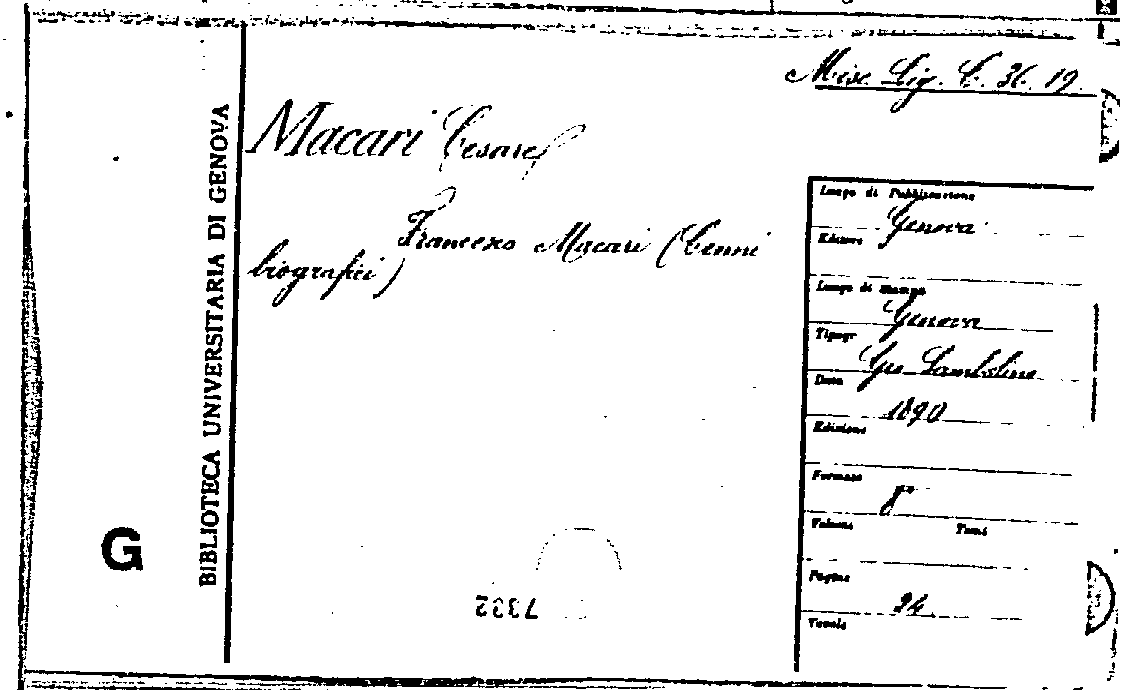 Misc. Lig. C. 36. 19.
BIBLIOTECA UNIVERSITARIA DI GENOVA
Macari Cesare
Francesco Macari (Cenni
biografici)
Luogo di Pubblicazione
Genova
Editore
Luogo di Stampa
Genova
Tipogr
Gio Sambolino
Data
1890
Edizione
Formato
8°
Volume Tomi
Pagine
24
Tavole
G
7332